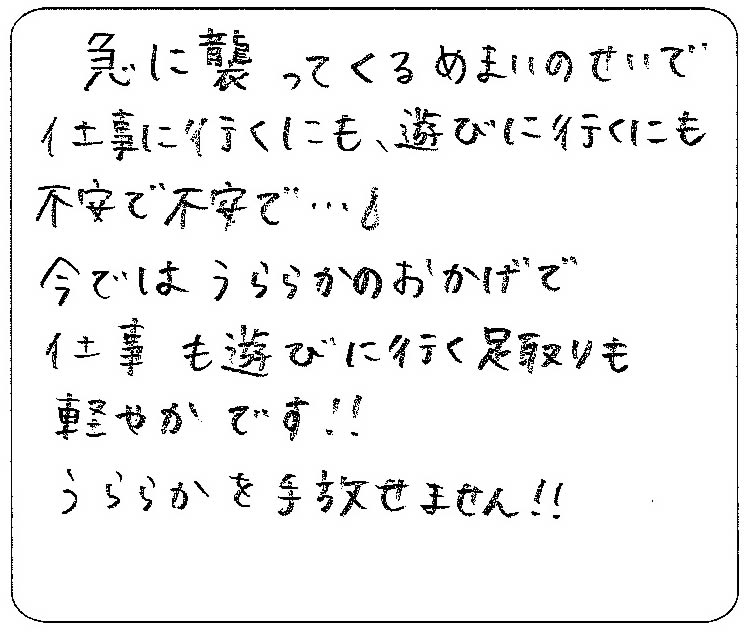 急に襲ってくるめまいのせいで
仕事に行くにも、遊びに行くにも
不安で不安で…
今ではうららかのおかげで
仕事も遊びに行く足取りも
軽やかです!!
うららかを手放せません!!